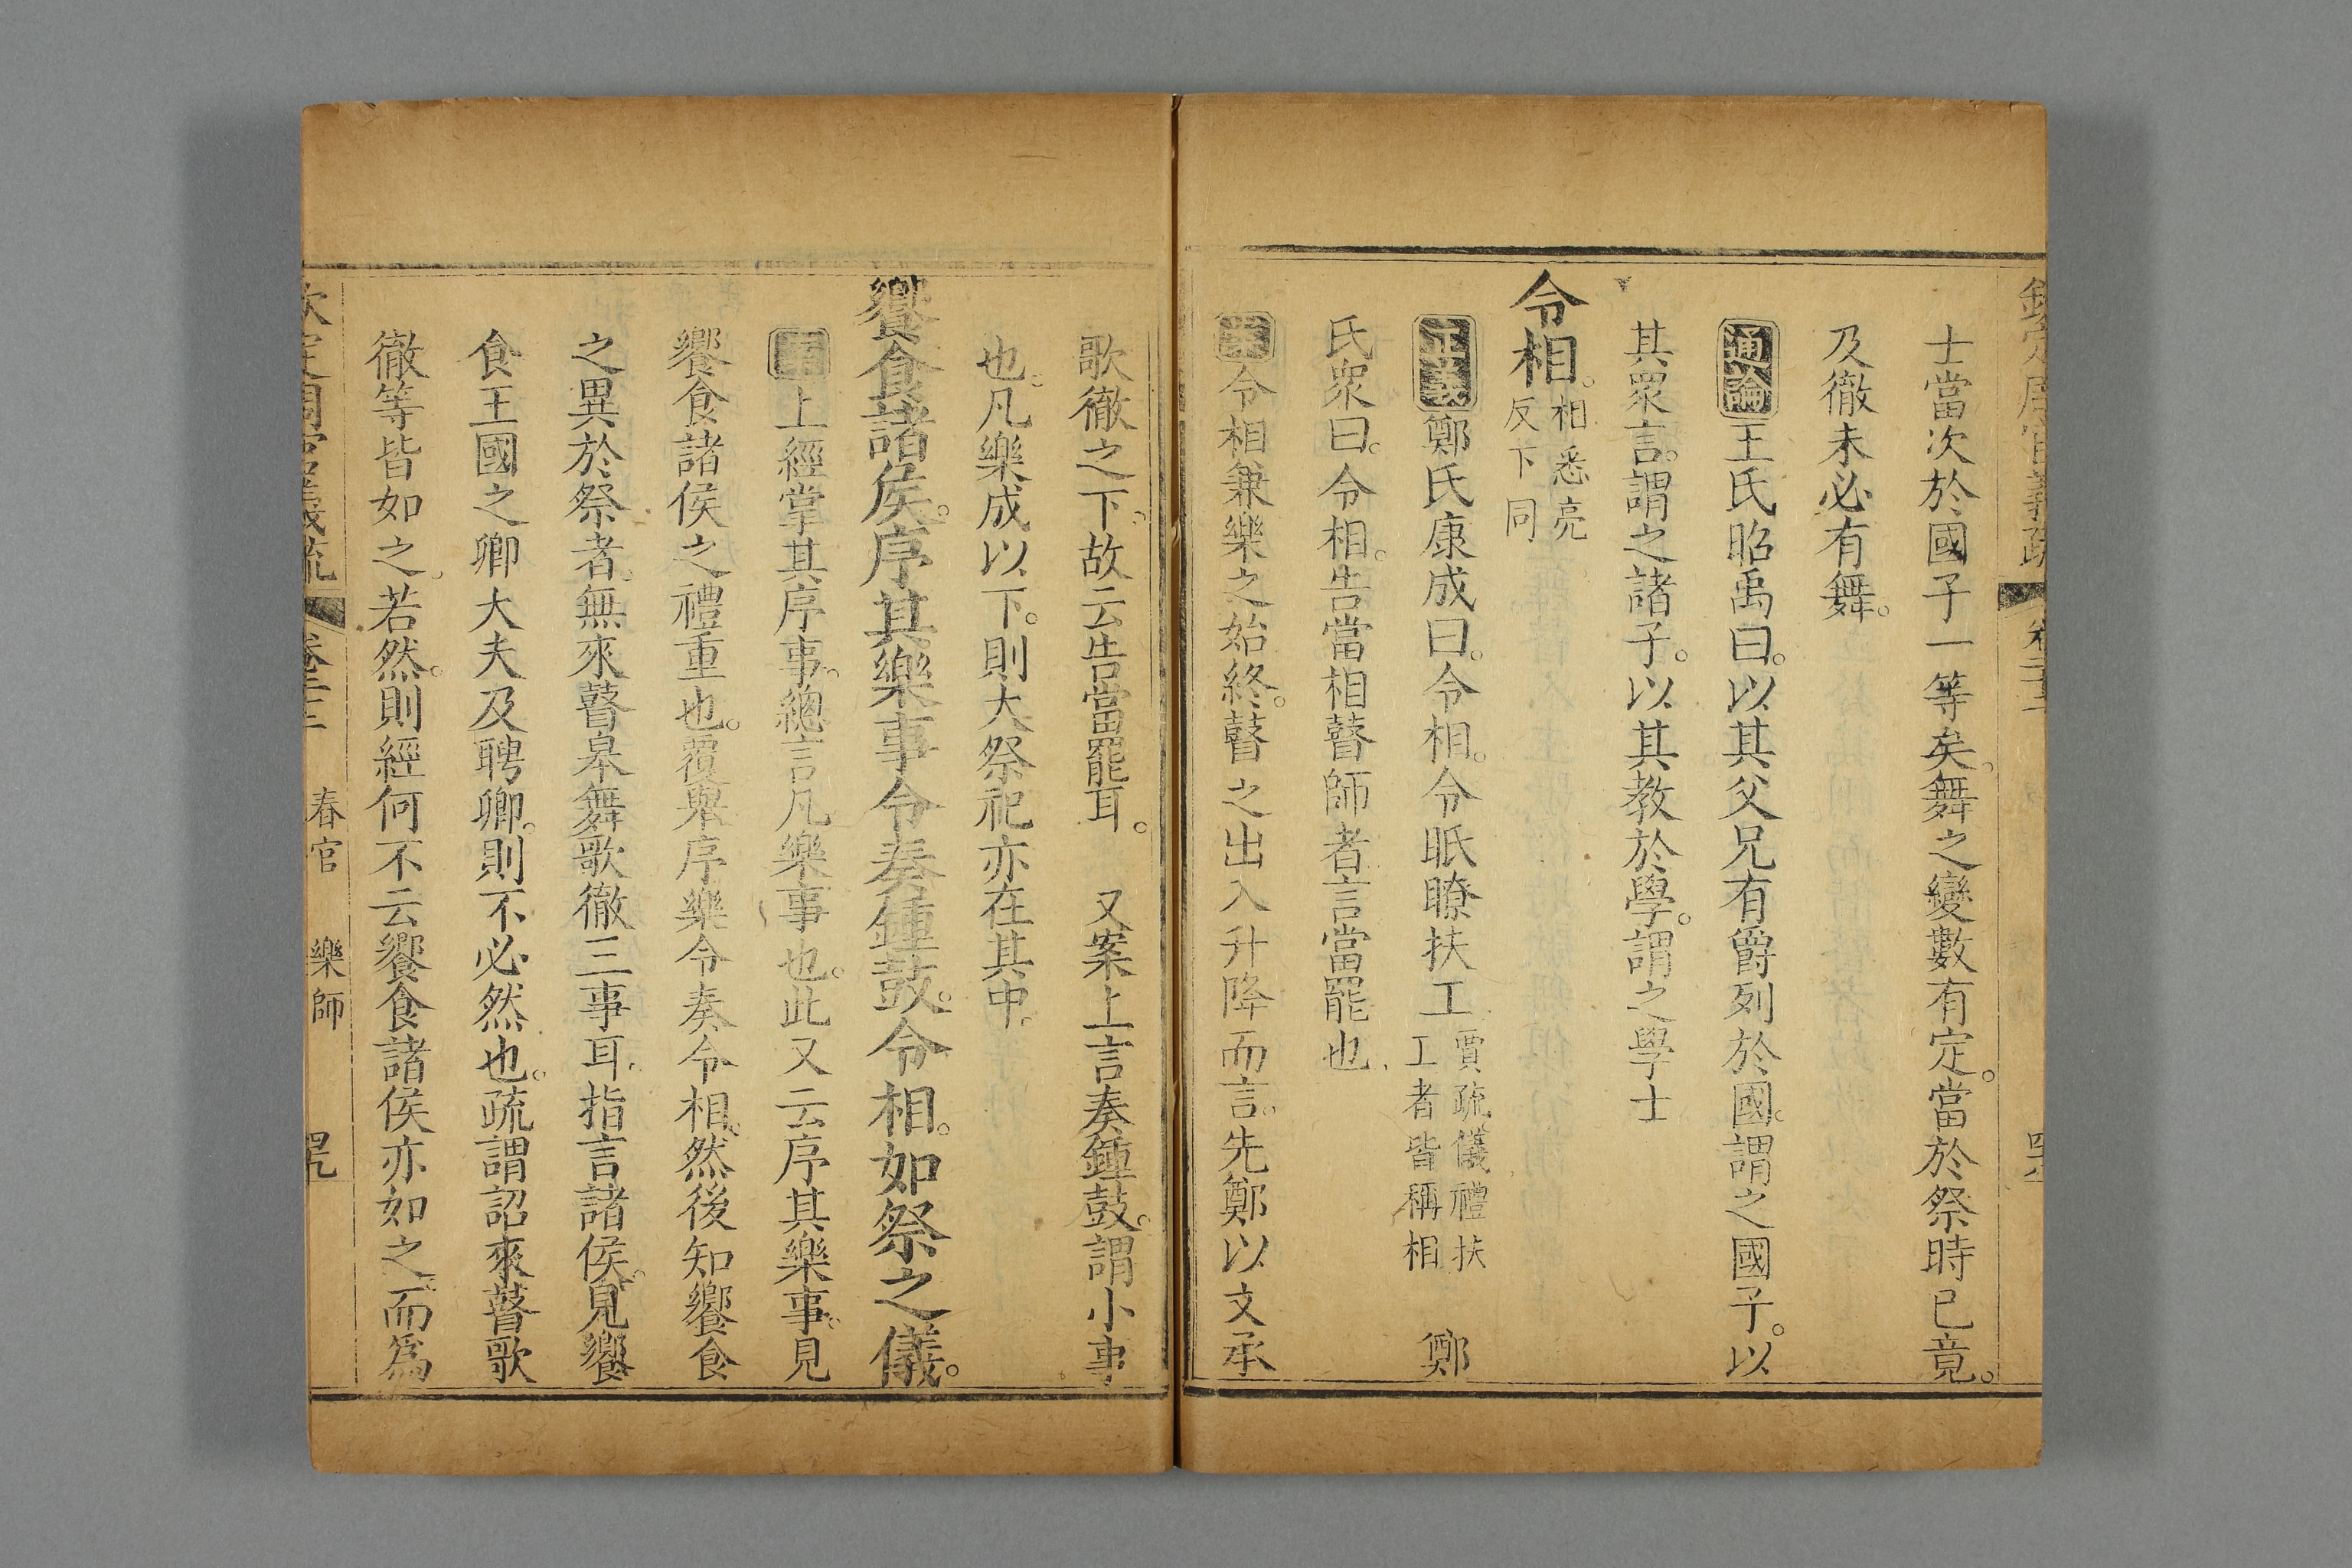 士當次於國子一等矣。舞之變數有定。當於祭時已竟。
及徹未必有舞。
通論王氏昭禹曰。以其父兄有爵列於國。謂之國子。以
其眾言。謂之諸子。以其教於學。謂之學士
令相。相悉亮
反下同
正義鄭氏康成曰。令相。令眂瞭扶工賈疏。儀禮扶
工者皆稱相 鄭
氏眾曰。令相。告當相瞽師者言當罷也。
案令相兼樂之始終。瞽之出入升降而言。先鄭以文承
歌徹之下。故云告當罷耳。 又案上言奏鍾鼓。謂小事
也。凡樂成以下。則大祭祀亦在其中。
饗食諸侯。序其樂事。令奏鍾鼓。令相。如祭之儀。
上經掌其序事。總言凡樂事也。此又云序其樂事。見
饗食諸侯之禮重也。覆舉序樂令奏令相。然後知饗食
之異於祭者。無來瞽皋舞歌徹三事耳。指言諸侯。見饗
食王國之卿大夫及聘卿。則不必然也。疏謂詔來瞽歌
徹等皆如之。若然。則經何不云饗食諸侯亦如之。而為
欽定周官義疏 卷二十二 春官 樂師 四九